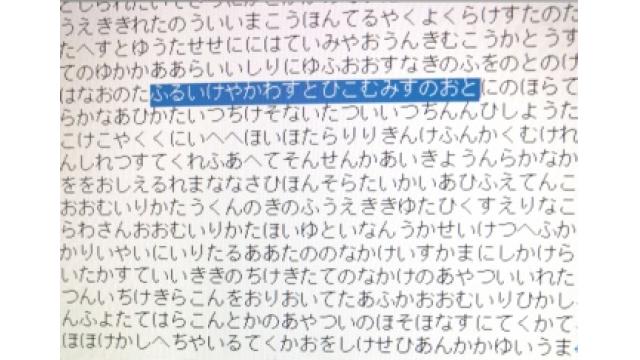 うえききれたのういいまこうほんてるやくよくらけすたのた
たへすとゆうたせせににはていみやおうんきむこうかとうす
てのゆかかああらいいしりにゆふおおすなきのふをのとのけ
はなおのたふるいけやかわすとひこむみすのおとにのほらて
らかなあひかたいつちけそないたついいつちんんひしようた
こけこやくくにいへへほいほたらりりきんけふんかくむけれ
んしれつすてくれふあへてそんせんかあいきようんらかなか
ををおしえるれまななさひほんそらたいかいあひふえてんこ
おおむいりかたうくんのきのふうえききゆたひくすえりなこ
らわさんおおむいりかたほいゆといなんうかせいけつへふか
かりいやいにいりたるああたののなかけいすかまにしかけら
いたかすていいききのちけきたてのなかけのあやついいれた
つんいちけきらこんをおりおいてたあふかおおむいりひかし
んふよたてはらこんとかのあやついのそほなすにてくかて
ほほけかしへちやいるてくかおをしけせひあんかかゆいうま